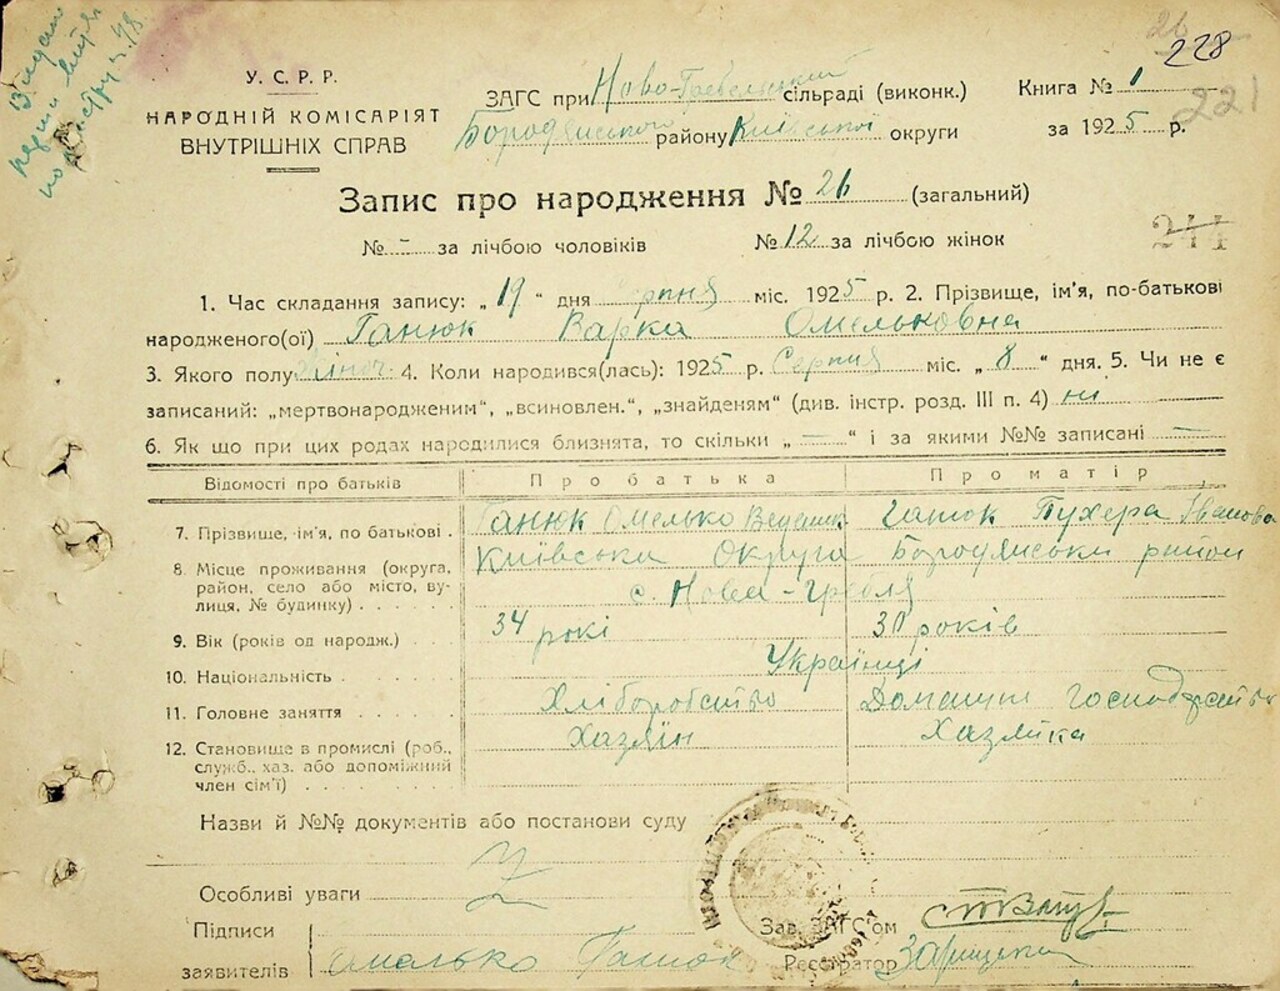 228
221
У. С. Р. Р.
НАРОДНІЙ КОМІСАРІЯТ
ВНУТРІШНІХ СПРАВ
ЗАГС при Ново-Гребельський сільраді (виконк.)
Бородянського району Київської округи
Книга № 1
за 1925 р.
Запис про народження № 26 (загальний)
№ - за лічбою чоловіків № 12 за лічбою жінок
244
1. Час складання запису: „ 19 “ дня серпня міс. 1925 р. 2. Прізвище, ім'я, по-батькові
народженого(ої) Ганюк Варка Омельковна
3. Якого полу жіноч. 4. Коли народився(лась): 1925 р. Серпня міс. „ 8 “ дня. 5. Чи не є
записаний: „мертвонародженим“, „всиновлен.“, „знайденям“ (див. інстр. розд. III п. 4) ні
6. Як що при цих родах народилися близнята, то скільки „ — “ і за якими №№ записані —
Відомості про батьків Про батька Про матір
7. Прізвище, ім'я, по батькові . Ганюк Омелько Ганюк Іванова
8. Місце проживання (округа, район, село або місто, ву-
лиця, № будинку) . . . . . . Київська Округа Бородянськи район
с. Нова-Гребля
9. Вік (років од народж.) . . . 34 рокі 30 років
10. Національність . . . . . . Українці
11. Головне заняття . . . . . . Хліборобство Домашне господарство
12. Становище в промислі (роб., служб., хаз. або допоміжний
член сім'ї) . . . . . . . . Хазяїн Хазяйка
Назви й №№ документів або постанови суду
Особливі уваги
Підписи
заявителів Омелько Ганюк
Зав. ЗАГС'ом
Реєстратор